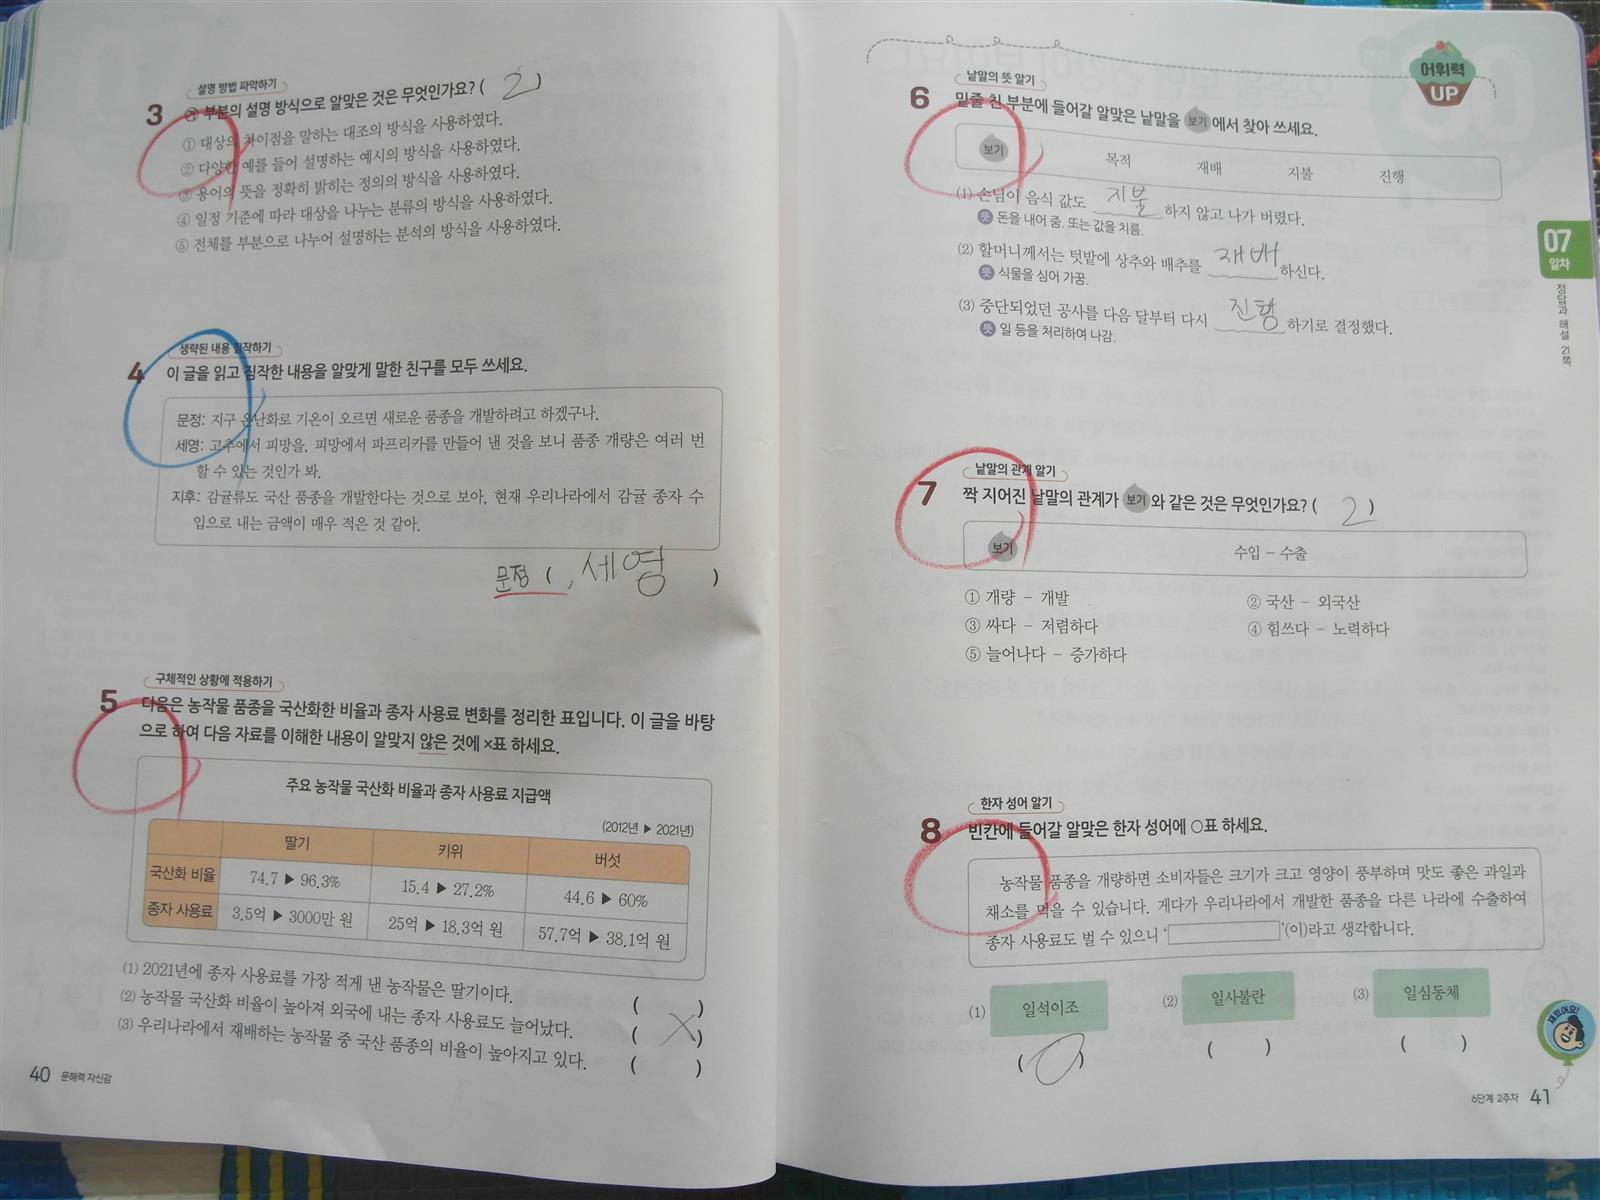 설명 방법 파악하기
3 ㉮ 부분의 설명 방식으로 알맞은 것은 무엇인가요? ( 2 )
① 대상의 차이점을 말하는 대조의 방식을 사용하였다.
② 다양한 예를 들어 설명하는 예시의 방식을 사용하였다.
③ 용어의 뜻을 정확히 밝히는 정의의 방식을 사용하였다.
④ 일정 기준에 따라 대상을 나누는 분류의 방식을 사용하였다.
⑤ 전체를 부분으로 나누어 설명하는 분석의 방식을 사용하였다.
생략된 내용 짐작하기
4 이 글을 읽고 짐작한 내용을 알맞게 말한 친구를 모두 쓰세요.
문정: 지구 온난화로 기온이 오르면 새로운 품종을 개발하려고 하겠구나.
세영: 고추에서 피망을, 피망에서 파프리카를 만들어 낸 것을 보니 품종 개량은 여러 번
할 수 있는 것인가 봐.
지후: 감귤류도 국산 품종을 개발한다는 것으로 보아, 현재 우리나라에서 감귤 종자 수
입으로 내는 금액이 매우 적은 것 같아.
문정 ( , 세영 )
구체적인 상황에 적용하기
5 다음은 농작물 품종을 국산화한 비율과 종자 사용료 변화를 정리한 표입니다. 이 글을 바탕
으로 하여 다음 자료를 이해한 내용이 알맞지 않은 것에 ×표 하세요.
주요 농작물 국산화 비율과 종자 사용료 지급액
(2012년 ▶ 2021년)
딸기 키위 버섯
국산화 비율 74.7 ▶ 96.3% 15.4 ▶ 27.2% 44.6 ▶ 60%
종자 사용료 3.5억 ▶ 3000만 원 25억 ▶ 18.3억 원 57.7억 ▶ 38.1억 원
(1) 2021년에 종자 사용료를 가장 적게 낸 농작물은 딸기이다. ( )
(2) 농작물 국산화 비율이 높아져 외국에 내는 종자 사용료도 늘어났다. ( X )
(3) 우리나라에서 재배하는 농작물 중 국산 품종의 비율이 높아지고 있다. ( )
40 문해력 자신감
어휘력
UP
낱말의 뜻 알기
6 밑줄 친 부분에 들어갈 알맞은 낱말을 보기 에서 찾아 쓰세요.
보기 목적 재배 지불 진행
(1) 손님이 음식 값도 지불 하지 않고 나가 버렸다.
뜻 돈을 내어 줌. 또는 값을 치름.
(2) 할머니께서는 텃밭에 상추와 배추를 재배 하신다.
뜻 식물을 심어 가꿈.
(3) 중단되었던 공사를 다음 달부터 다시 진행 하기로 결정했다.
뜻 일 등을 처리하여 나감.
07
일차
정답과 해설 21쪽
낱말의 관계 알기
7 짝 지어진 낱말의 관계가 보기 와 같은 것은 무엇인가요? ( 2 )
보기 수입 – 수출
① 개량 – 개발 ② 국산 – 외국산
③ 싸다 – 저렴하다 ④ 힘쓰다 – 노력하다
⑤ 늘어나다 – 증가하다
한자 성어 알기
8 빈칸에 들어갈 알맞은 한자 성어에 ○표 하세요.
농작물 품종을 개량하면 소비자들은 크기가 크고 영양이 풍부하며 맛도 좋은 과일과
채소를 먹을 수 있습니다. 게다가 우리나라에서 개발한 품종을 다른 나라에 수출하여
종자 사용료도 벌 수 있으니 ‘ ’(이)라고 생각합니다.
(1) 일석이조 (2) 일사불란 (3) 일심동체
( O ) ( ) ( )
재밌어요!
6단계 2주차 41